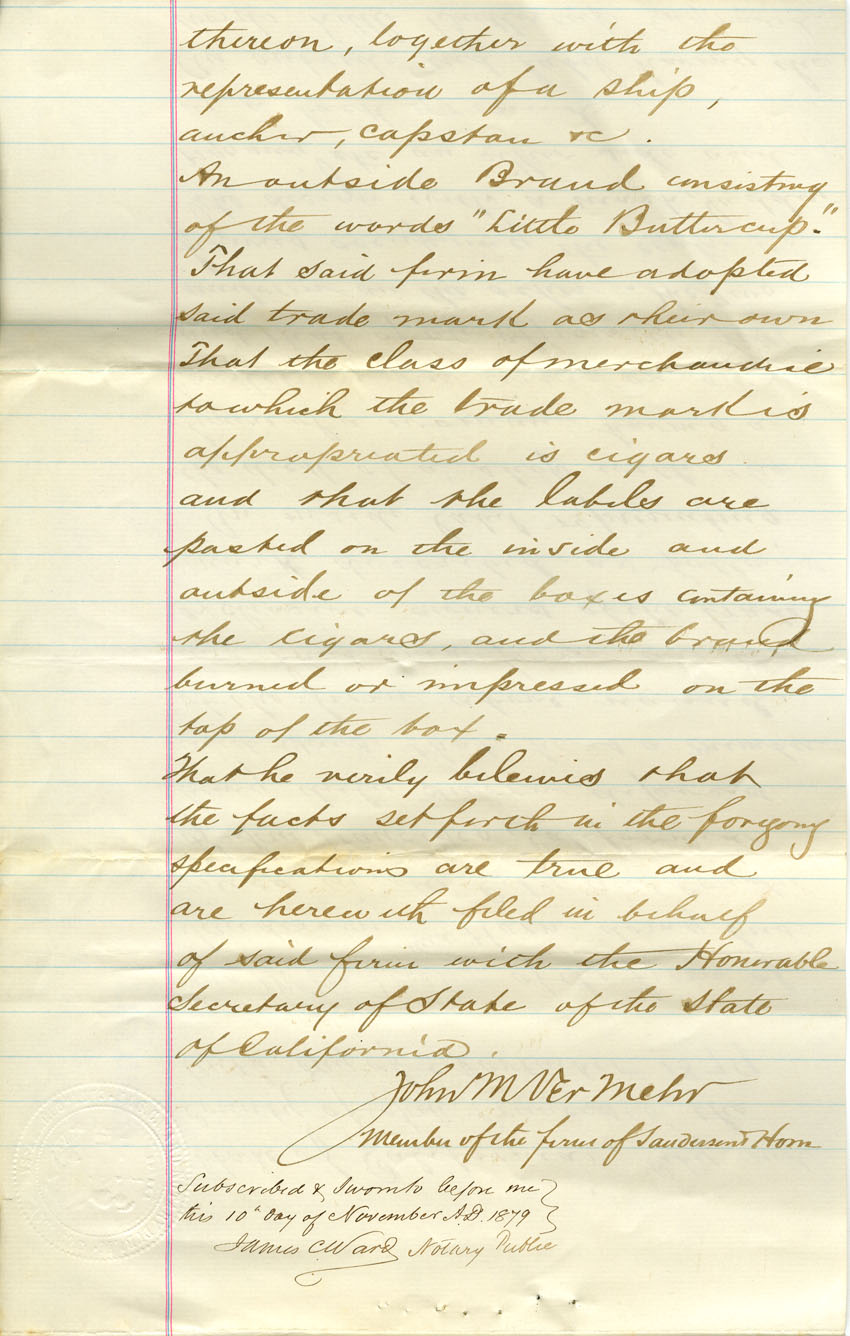 thereon, together with the
representation of a ship,
anchor, capstan &c.
An outside Brand consisting
of the words "Little Buttercup."
That said firm have adopted
said trade mark as their own
That the class of merchandise
to which the trade mark is
appropriated is cigars
and that the labels are
pasted on the inside and
outside of the boxes containing
the cigars, and the brand
burned or impressed on the
top of the box.
That he verily believes that
the facts set forth in the foregoing
specifications are true and
are herewith filed in behalf
of said firm with the Honorable
Secretary of State of the State
of California.
John M Ver Mehr
Member of the firm of Horn
Subscribed & Sworn to before me
this 10th day of November A.D. 1879
James C. Ward Notary Public